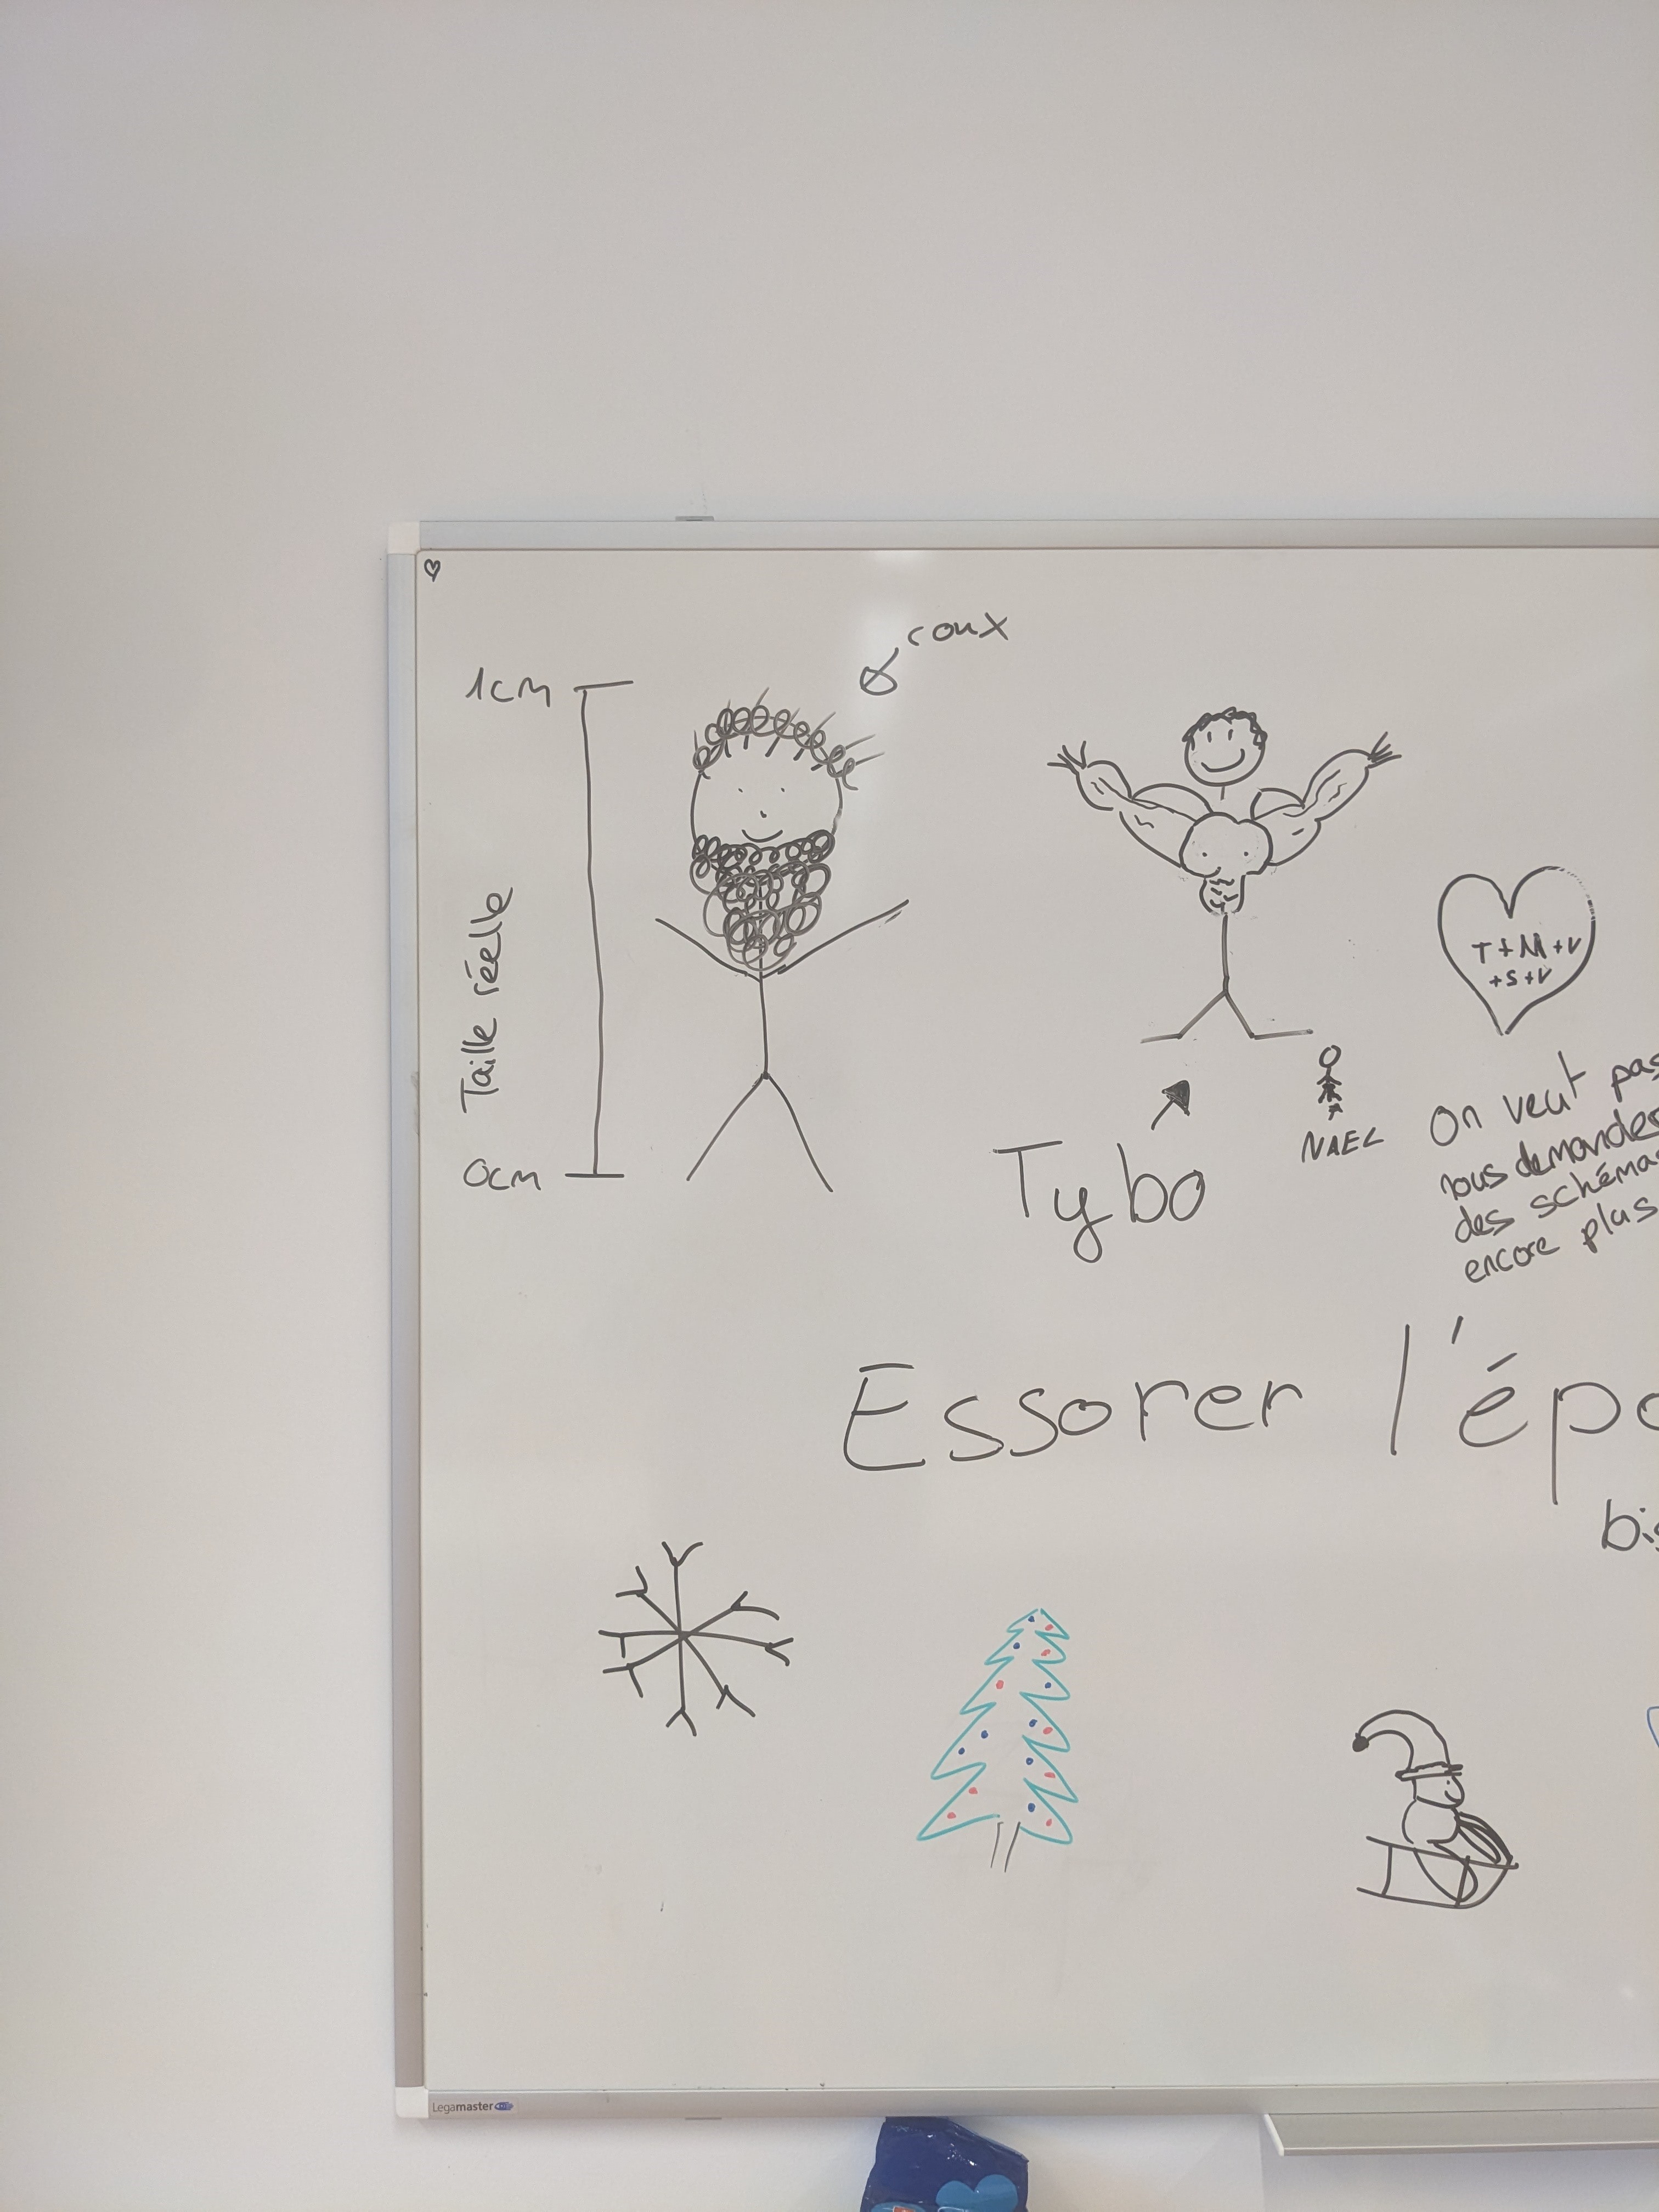 roux
1cm
Taille réelle
0cm
Tybo
NAEL
T+M+V
+S+V
On veut pas
nous demander
des schémas
encore plus
Essorer l'épo
bis
Legamaster